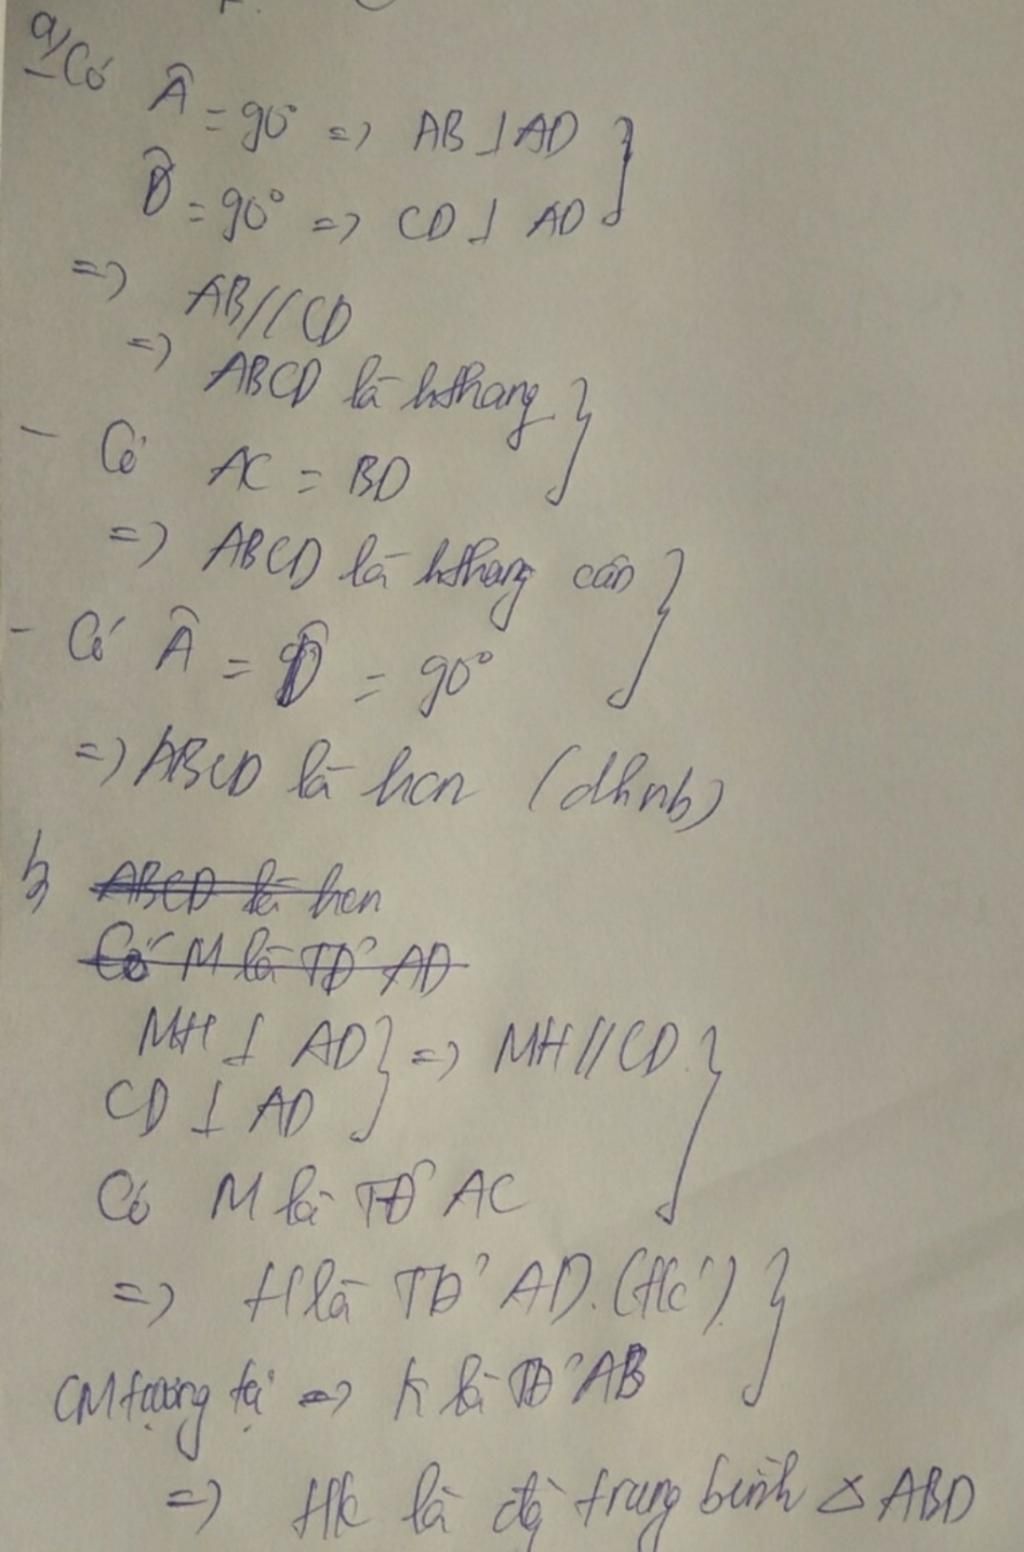 a) Có Â = 90° => AB ⊥ AD
D̂ = 90° => CD ⊥ AD
=> AB // CD
=> ABCD là hthang
- Có AC = BD
=> ABCD là hthang cân
- Có Â = D̂ = 90°
=> ABCD là hcn (dhnb)
b) ABCD là hcn
Có M là TĐ AD
MH ⊥ AD } => MH // CD
CD ⊥ AD
Có M là TĐ AC
=> H là TĐ AD. (t/c)
CM tương tự => K là TĐ AB
=> HK là đg trung bình △ ABD